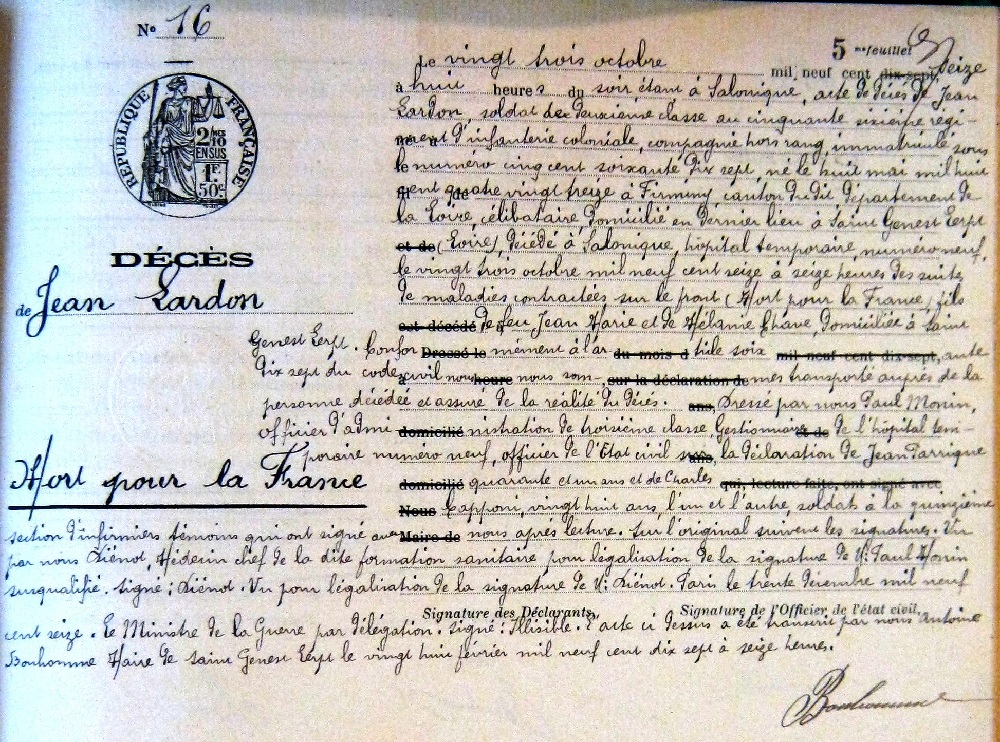 N° 16
5 me feuillet
RÉPUBLIQUE FRANÇAISE
2/10 MES
EN SUS
1 F.
50 c.
DÉCÈS
de Jean Lardon
Mort pour la France
Le vingt trois octobre mil neuf cent dix-sept, seize
à huit heures du soir étant à Salonique, acte de décès de Jean
Lardon, soldat de deuxième classe au cinquante sixième regi-
ment d'infanterie coloniale, compagnie hors rang, immatriculé sous
le numéro cinq cent soixante dix sept, né le huit mai mil huit
cent quatre vingt treize à Firminy, canton du dit, département de
la Loire, célibataire, domicilié en dernier lieu à Saint Genest Lerpt
et de (Loire), décédé à Salonique, hôpital temporaire, numéro neuf,
le vingt trois octobre mil neuf cent seize à seize heures des suites
de maladies contractées sur le front (Mort pour la France) fils
est décédé de feu Jean Marie et de Mélanie Chave, domiciliée à Saint
Genest Lerpt. Confor Dressé le mément à l'ar du mois d ticle soix mil neuf cent dix-sept, ante
dix sept du code civil nous heure nous som- sur la déclaration de mes transporté auprès de la
personne décédée et assuré de la réalité du décès. ans, Dressé par nous Paul Monin,
officier d'admi domicilié nistration de troisième classe, Gestionnaire et de de l'hôpital tem-
poraire numéro neuf, officier de l'Etat civil sur ans, la déclaration de Jean Parrique
domicilié quarante et un ans et de Charles qui, lecture faite, ont signé avec
Nous Capponi, vingt huit ans, l'un et l'autre, soldats à la quinzième
section d'infirmiers témoins qui ont signé avec Maire de nous après lecture. Sur l'original suivent les signatures. Vu
par nous Diénot, Médecin chef de la dite formation sanitaire pour légalisation de la signature de M. Paul Monin
susqualifié. Signé: Diénot. Vu pour légalisation de la signature de M. Diénot. Paris le trente décembre mil neuf
Signature des Déclarants, Signature de l'Officier de l'état civil,
cent seize. Le Ministre de la Guerre par délégation. Signé: Illisible. L'acte ci dessus a été transcrit par nous Antoine
Bonhomme Maire de Saint Genest Lerpt le vingt huit février mil neuf cent dix sept à seize heures.
Bonhomme